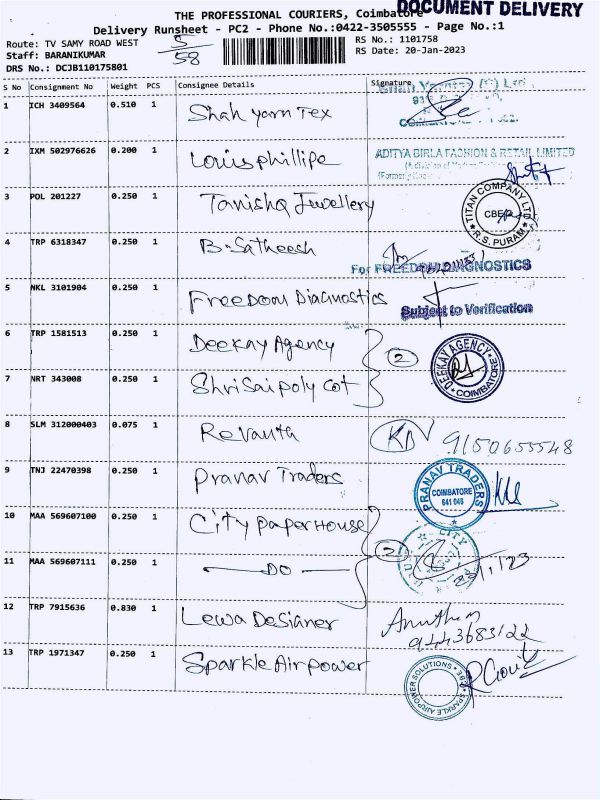 DOCUMENT DELIVERY
THE PROFESSIONAL COURIERS, Coimbatore
Delivery Runsheet - PC2 - Phone No.:0422-3505555 - Page No.:1
Route: TV SAMY ROAD WEST
5
58
RS No.: 1101758
Staff: BARANIKUMAR
RS Date: 20-Jan-2023
DRS No.: DCJB110175801
S No Consignment No Weight PCS Consignee Details Signature
1 ICH 3409564 0.510 1 Shah yarn Tex
2 IXM 502976626 0.200 1 Louisphillipe
ADITYA BIRLA FASHION & RETAIL LIMITED
3 POL 201227 0.250 1 Tanishq Jwellery
TITAN COMPANY LTD
R.S. PURAM
4 TRP 6318347 0.250 1 B.Satheesh
For FREEDOM DIAGNOSTICS
5 NKL 3101904 0.250 1 Freedom Diagnostics
Subject to Verification
6 TRP 1581513 0.250 1 Deekay Agency 2
DEEKAY AGENCY
COIMBATORE
7 NRT 343008 0.250 1 Shri Sai poly cot
8 SLM 312000403 0.075 1 Revanta
9150655548
9 TNJ 22470398 0.250 1 Pranav Traders
PRANAV TRADERS
COIMBATORE
641 046
10 MAA 569607100 0.250 1 City paper House
CITY
2
11 MAA 569607111 0.250 1 DO
12 TRP 7915636 0.830 1 Lewa Desianer
9443683122
13 TRP 1971347 0.250 1 Sparkle Airpower
SPARKLE AIRPOWER SOLUTIONS